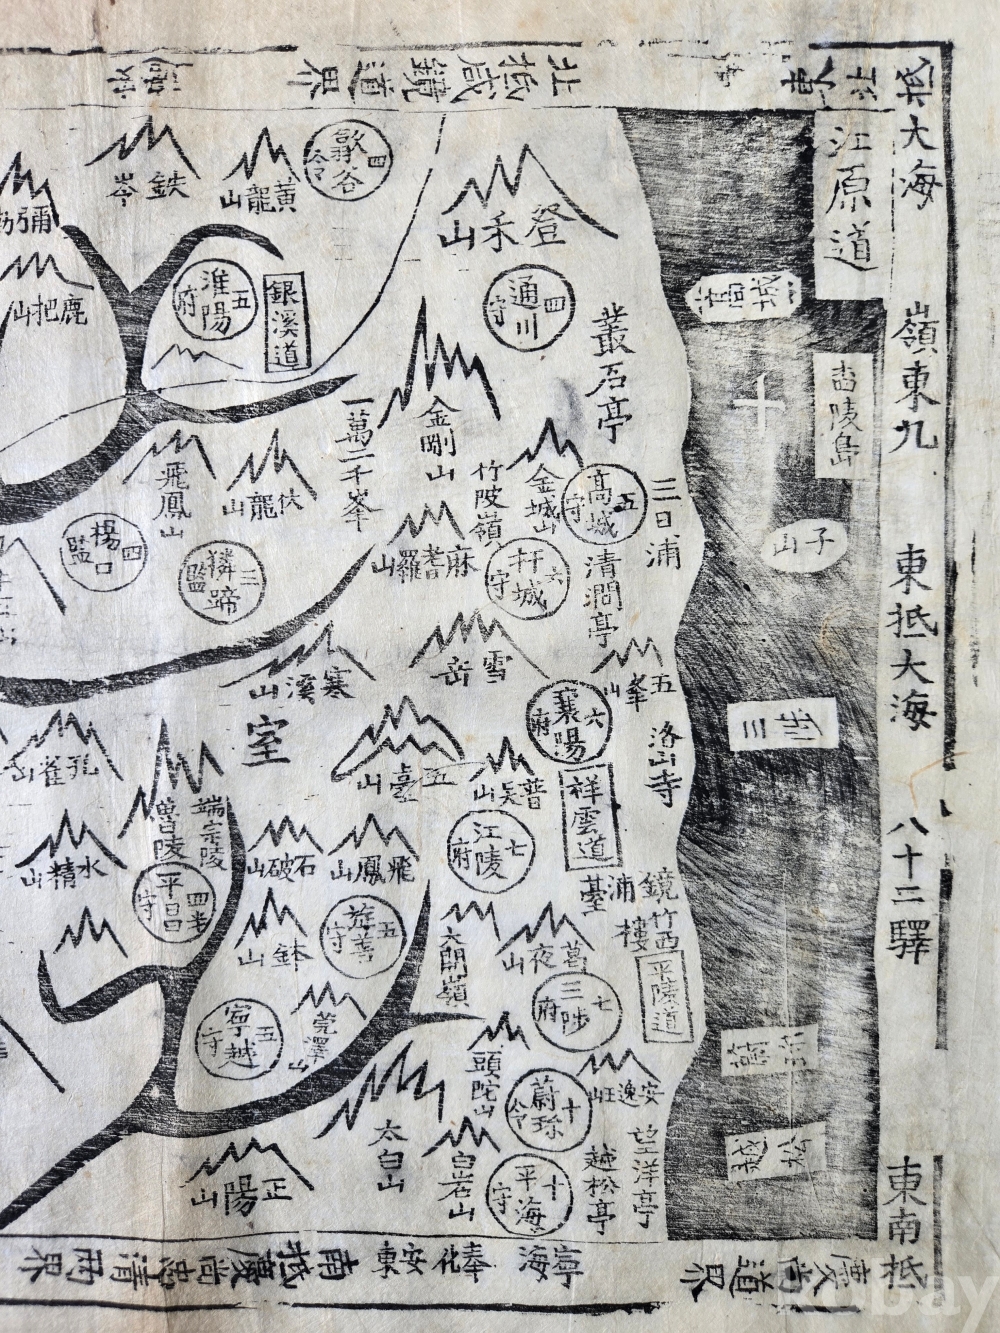 北抵咸鏡道界
東北
大海
江原道
嶺東九
東抵大海
八十二驛
東南抵
慶尚道界
南抵慶尚忠清兩界
東安
化奉
海亭
歙谷 四 令
鉄岑
黃龍山
登禾山
鹿把山
淮陽 五 府
銀溪道
通川 四 守
叢石亭
高城
一萬二千峯
金剛山
飛鳳山
伏龍山
竹陂嶺
金城山
高城 五 守
三日浦
楊口 四 監
獜蹄 三 監
麻耆羅山
杆城 六 守
清澗亭
子山
寒溪山
雪岳
五峯山
室
襄陽 六 府
洛山寺
三
孔雀山
五臺山
普吴山
祥雲道
魯陵
端宗陵
江陵 七 府
水精山
石破山
飛鳳山
鏡浦臺
竹西樓
平昌 四 守
旌善 五 守
鉢山
大關嶺
葛夜山
平陵道
三陟 七 府
寧越 五 守
莞澤山
頭陀山
安逸王山
蔚珎 十 令
蔚珎
太白山
白岩山
越松亭
望洋亭
越松
正陽山
平海 十 守
kobay